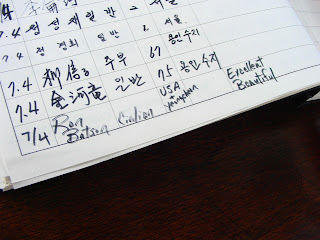 7.4 일반 서울
7.4 정 정희 일반 서울.
7.4 주부 67 용인수지
7.4 金河 일반 75 용인수지
7/4 Ron Batson Civilian USA Yongsan Excellent Beautiful